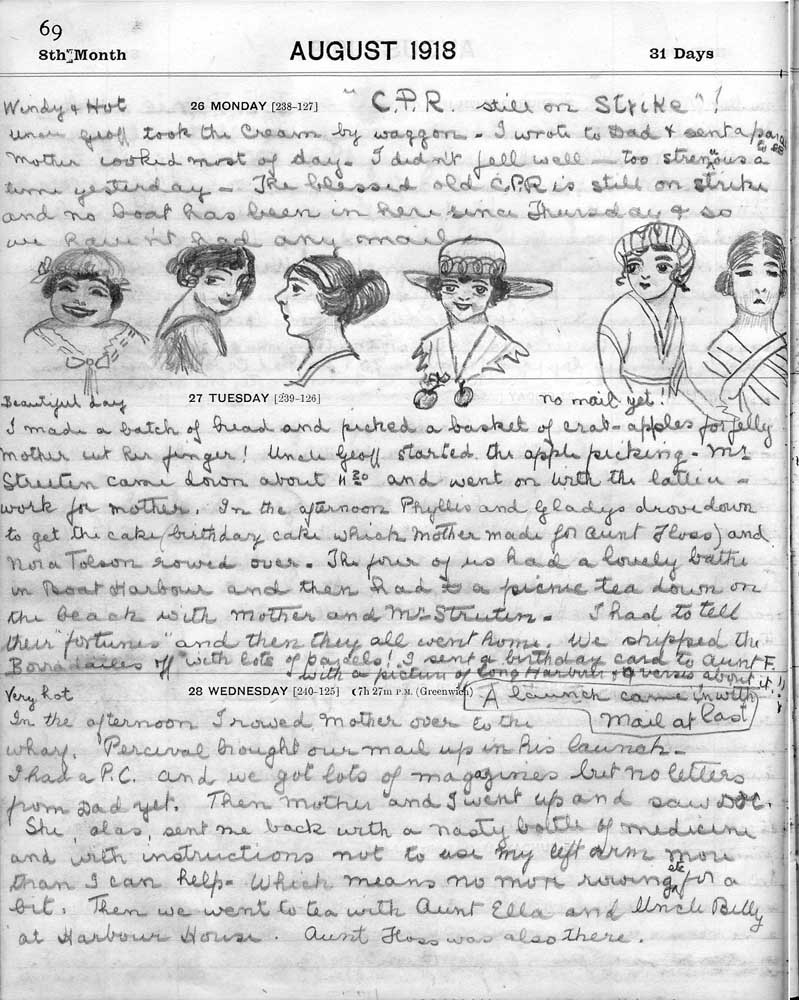 69
8th Month
AUGUST 1918
31 Days
Windy & Hot
26 MONDAY [238-127]
"C.P.R. still on Strike"!
Uncle Geoff took the Cream by waggon - I wrote to Dad & sent a
Mother cooked most of day - I didn't fell well - too strenuous a
time yesterday - The blessed old C.P.R is still on strike
and no boat has been in here since Thursday & so
we haven't had any mail -
Beautiful day
27 TUESDAY [239-126]
no mail yet!
I made a batch of bread and picked a basket of crab-apples for jelly
Mother cut her finger! Uncle Geoff started the apple picking - Mr
Struten came down about 11 30 and went on with the lattice -
work for mother. In the afternoon Phyllis and Gladys drove down
to get the cake (birthday cake which Mother made for Aunt Floss) and
Nora Tolson rowed over. The four of us had a lovely bathe
in Boat Harbour and then had a picnic tea down on
the beach with Mother and Mr Struten - I had to tell
their "fortunes" and then they all went home. We shipped the
Borradailes off with lots of parcels! I sent a birthday card to Aunt F.
with a picture of Long Harbour & verses about it!!
Very hot
28 WEDNESDAY [240-125] ☾7h 27m P.M. (Greenwich)
A launch came in with
Mail at last
In the afternoon I rowed Mother over to the
wharf. Percival brought our mail up in his launch -
I had a P.C. and we got lots of magazines but no letters
from Dad yet. Then Mother and I went up and saw DOC.
She, alas, sent me back with a nasty bottle of medicine
and with instructions not to use my left arm more
than I can help - Which means no more rowing etc for a
bit. Then we went to tea with Aunt Ella and Uncle Billy
at Harbour House. Aunt Floss was also there.